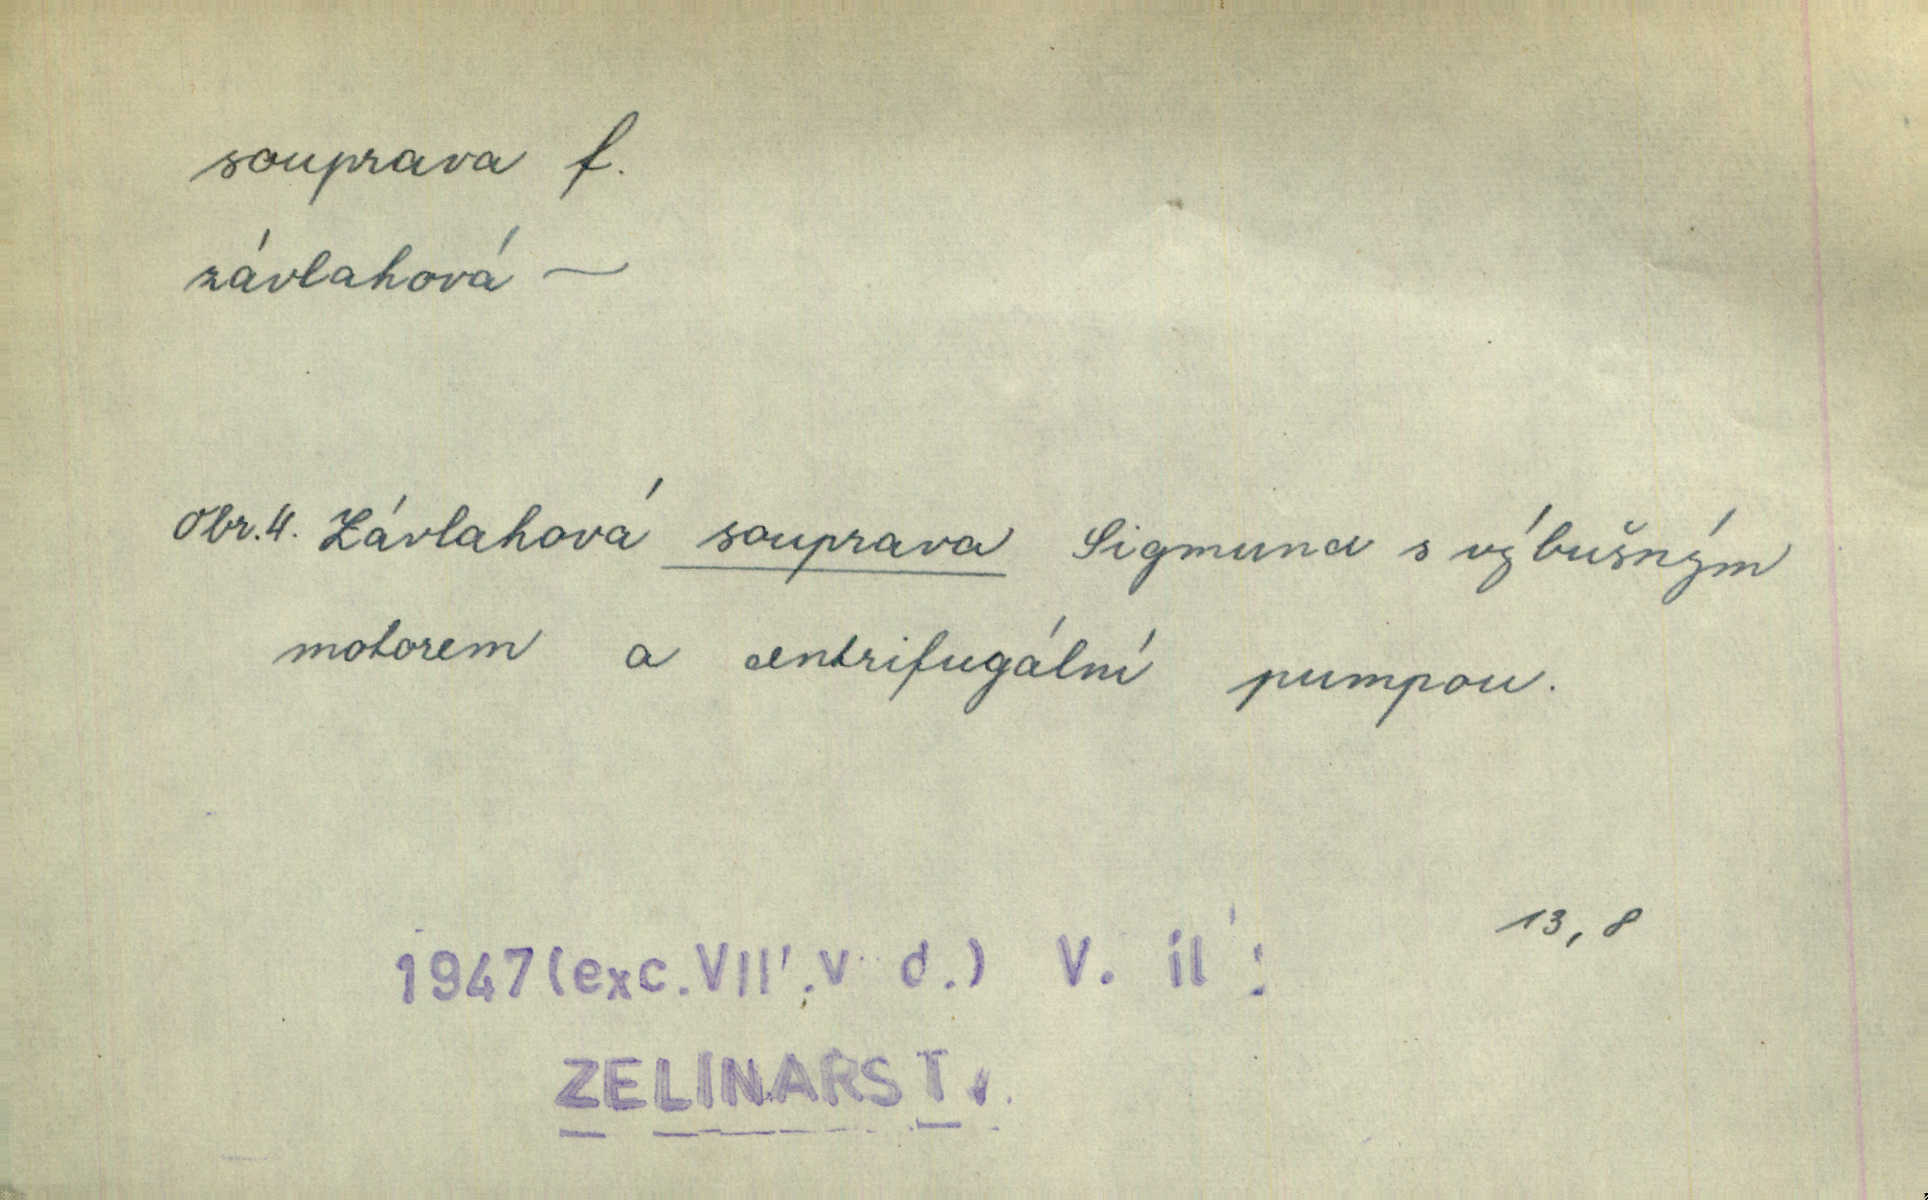 souprava f.
závlahová ~
Obr.4. Závlahová souprava Sigmund s výbušným
motorem a centrifugální pumpou.
13,8
1947 (exc. VII. v d.) V. íl
ZELINÁŘST